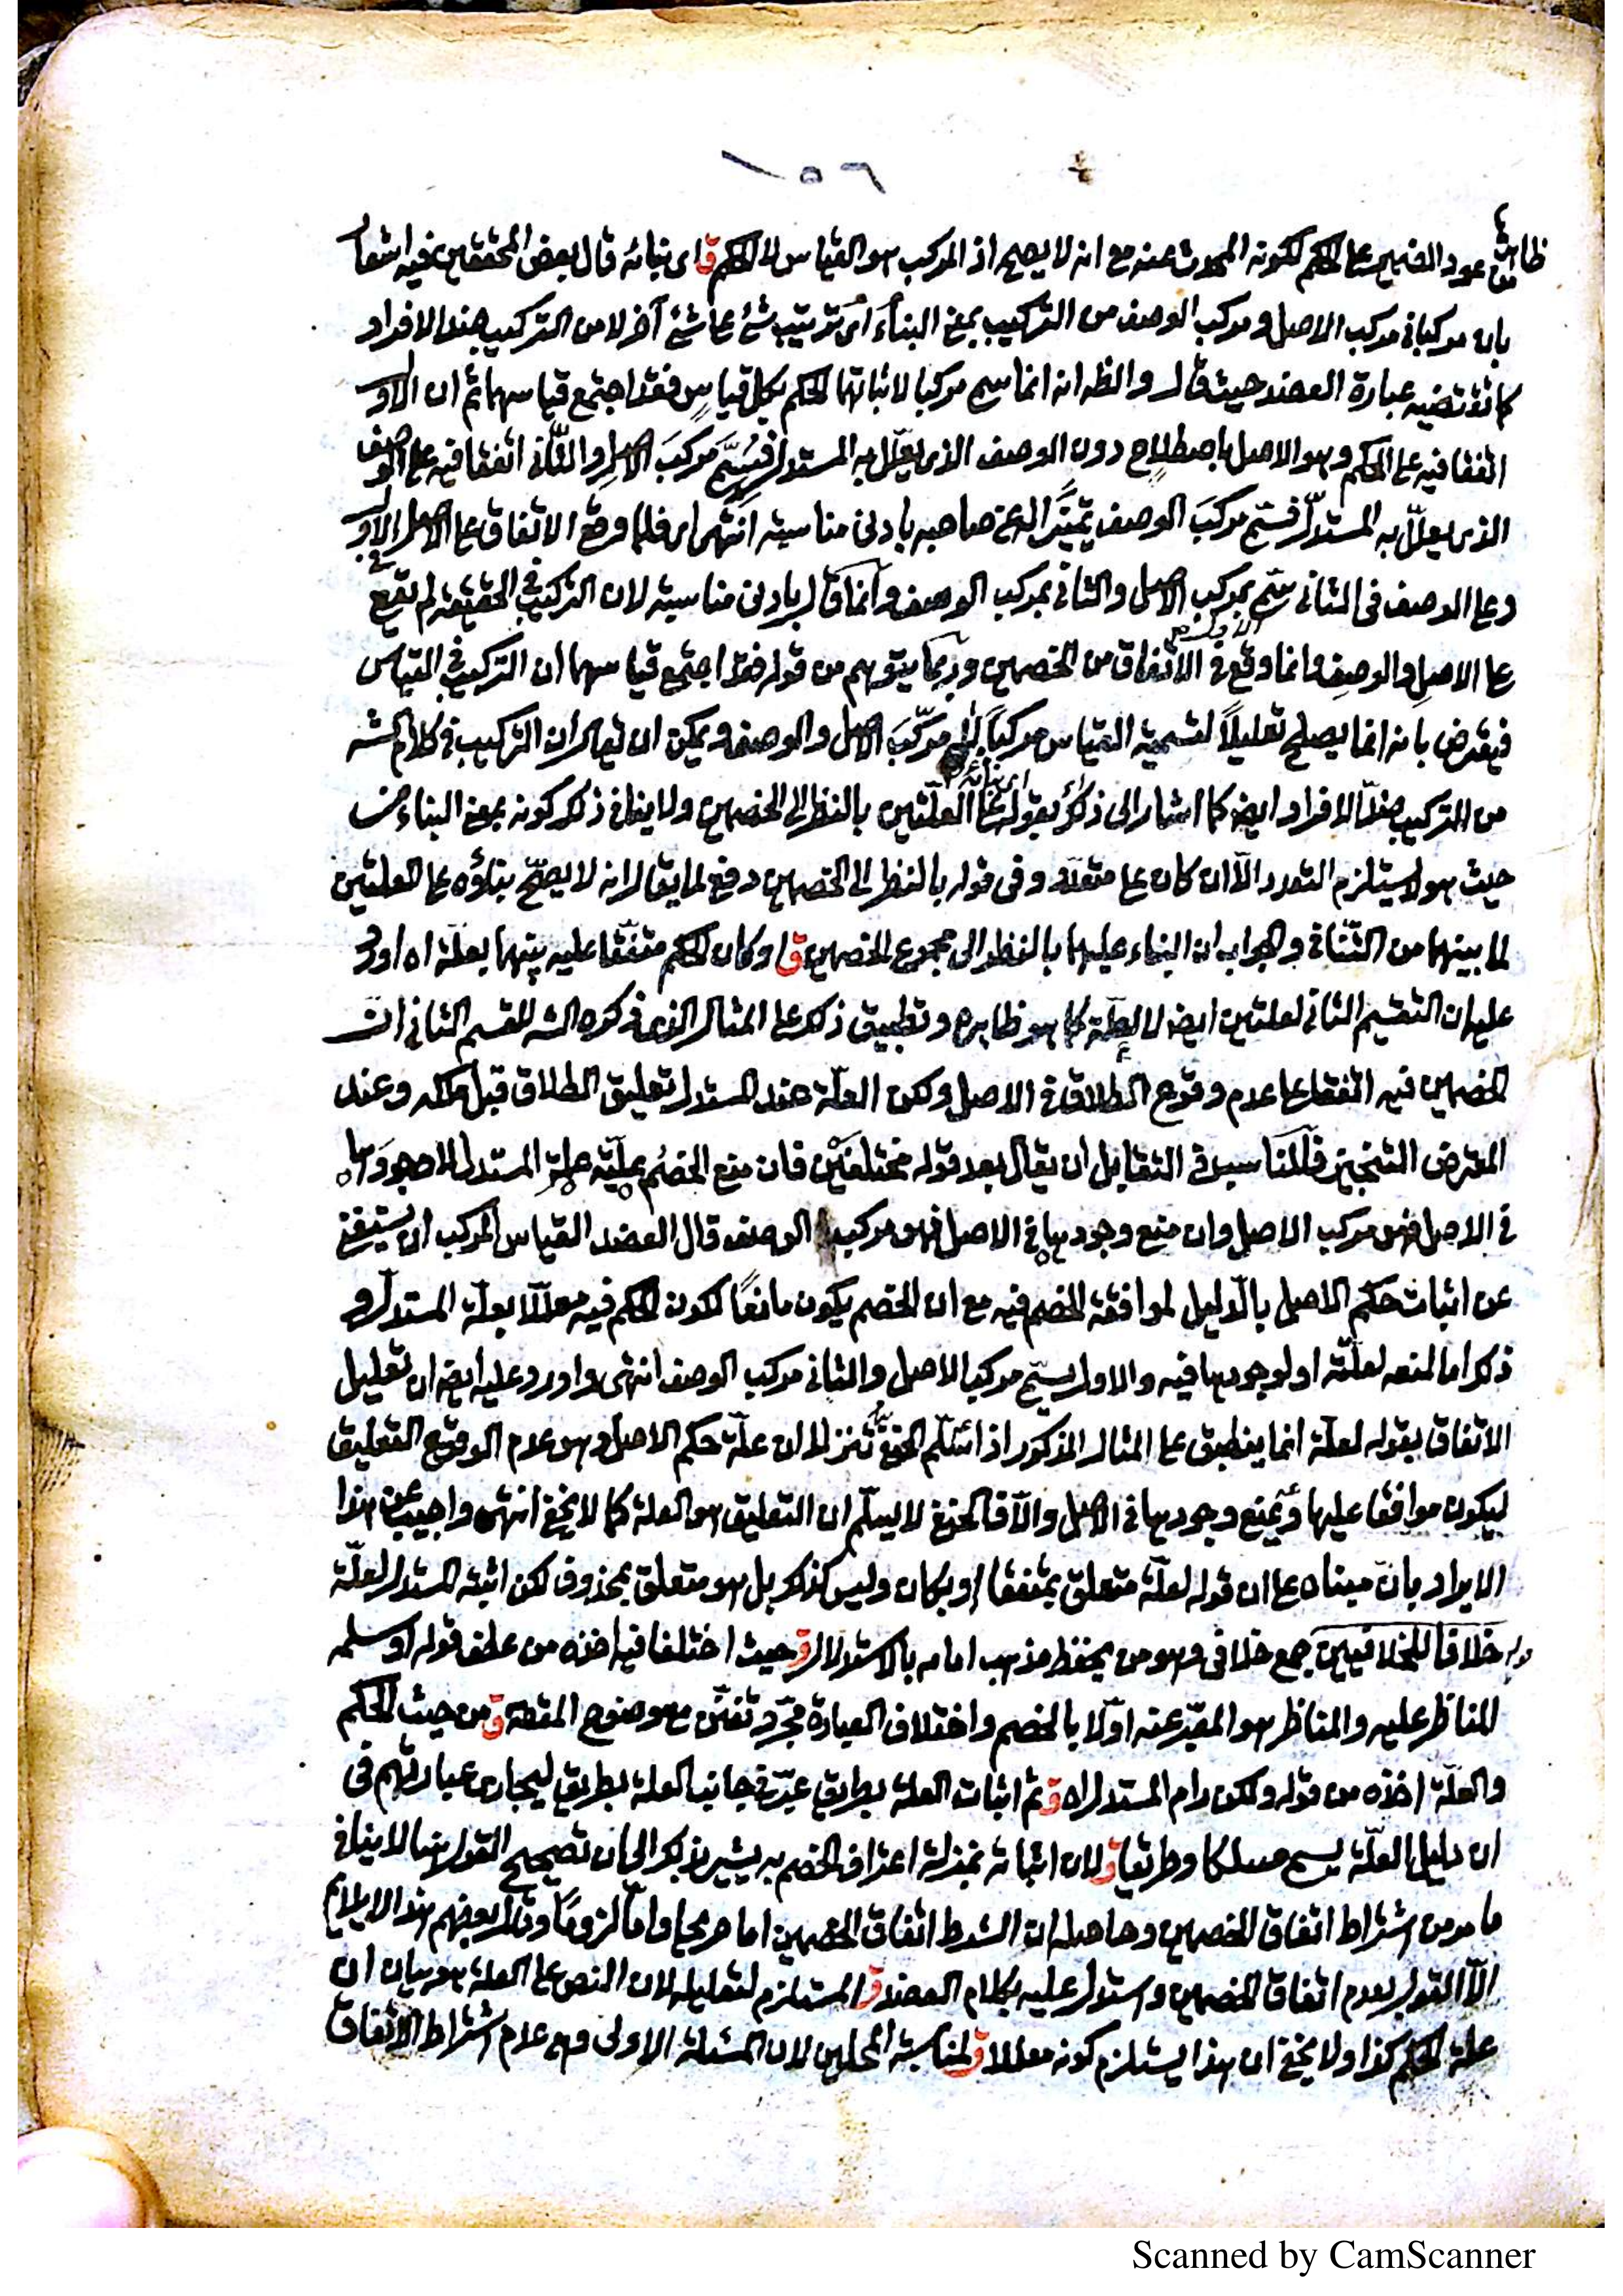 ١٥٦
من عود الضمير على الحكم لكونه المحدث عنه مع انه لا يصح اذ المركب هو القياس لا الحكم ق اى بنائه قال بعض المحققين فيه اشعار
بان مركبا فى مركب الاصل و مركب الوصف من التركيب بمعنى البناء اى ترتيب شئ على شئ آخر لا من التركيب ضد الافراد
كما تقتضيه عبارة العضد حيث قال والظ انه انما سمى مركبا لاثباتهما الحكم بكل قياس فقد اجتمع قياسهما ثم ان الاول
اتفقا فيه على الحكم وهو الاصل باصطلاح دون الوصف الذى يعلل به المستدل فسمى مركب الاصل والثانى اتفقا فيه على الوصف
الذى يعلل به المستدل فسمى مركب الوصف تمييزا له عن صاحبه بادنى مناسبة انتهى اى فلما وقع الاتفاق على الاصل فى الاول
وعلى الوصف فى الثانى سمى بمركب الاصل والثانى بمركب الوصف وانما قال بادنى مناسبة لان التركيب فى الحقيقة لم يقع
على الاصل والوصف وانما وقع فى الاتفاق من الخصمين وربما يتوهم من قوله فقد اجتمع قياسهما ان التركيب فى القياس
فيعترض بانه انما يصلح تعليلا لتسمية القياس مركبا لا مركب الاصل والوصف ويمكن ان يقال ان التركيب فى كلام الشه
من التركيب ضد الافراد ايض كما اشار الى ذلك بقوله اى بنائه على العلتين بالنظر الى الخصمين ولا ينافى ذلك كونه بمعنى البناء من
حيث هو لا يستلزم التعدد الا ان كان على متعدد وفى قوله بالنظر الى الخصمين دفع لما يقال انه لا يصح بناؤه على العلتين
لما بينهما من التنافى والجواب ان البناء عليهما بالنظر الى مجموع الخصمين ق او كان الحكم متفقا عليه بينهما بعلة اه اورد
عليه ان التقسيم الثانى لعلتين ايض لا لعلة كما هو ظاهره وتطبيق ذلك على المثال الذى ذكره الشه للقسم الثانى ان
الخصمين فيه اتفقا على عدم وقوع الطلاق فى الاصل ولكن العلة عند المستدل تعليق الطلاق قبل ملكه وعند
المعترض التنجيز فالمناسب فى التقابل ان يقال بعد قوله مختلفتين فان منع الخصم علية علة المستدل لا وجودها
فى الاصل فهو مركب الاصل وان منع وجودها فى الاصل فهو مركب الوصف قال العضد القياس المركب ان يستغنى
عن اثبات حكم الاصل بالدليل لموافقة الخصم فيه مع ان الخصم يكون مانعا لكون الحكم فيه معللا بعلة المستدل و
ذلك اما لمنعه لعلته او لوجودها فيه والاول يسمى مركب الاصل والثانى مركب الوصف انتهى واورد عليه ايض ان تعليل
الاتفاق بقوله لعلة انما ينطبق على المثال المذكور اذا سلم الحنفى تنزلا ان علة حكم الاصل وهو عدم الوقوع التعليق
ليكون موافقا عليها ويمنع وجودها فى الاصل والا فالحنفى لا يسلم ان التعليق هو العلة كما لا يخفى انتهى واجيب عن هذا
الايراد بان مبناه على ان قوله لعلة متعلق بمتفقا او بكان وليس كذلك بل هو متعلق بمحذوف لكن اثبته المستدل لعلة
خلافا للخلافيين جمع خلافى وهو من يحفظ مذهب امامه بالاستدلال ق حيث اختلفا فيه اخذه من عطف قوله او سلمه
المناظر عليه والمناظر هو المعبر عنه اولا بالخصم واختلاف العبارة مجرد تفنن مع وضوح المقصد ق من حيث الحكم
والعلة اخذه من قوله ولكن رام المستدل اه ق ثم اثبات العلة بطريق عبر فى جانب العلة بطريق ليجارى عبارتهم فى
ان دليل العلة يسمى مسلكا وطريقا ق لان اثباته بمنزلة اعتراف الخصم به يشير بذلك الى ان تصحيح القول هنا لا ينافى
ما مر من اشتراط اتفاق الخصمين وحاصله ان الشرط اتفاق الخصمين اما صريحا واما لزوما وقال بعضهم هذا لا يلائم
الا القول بعدم اتفاق الخصمين واستدل عليه بكلام العضد ق المستلزم لتعليله لان النص على العلة هو بيان ان
علة الحكم كذا ولا يخفى ان هذا يستلزم كونه معللا ق لمناسبة المحلين لان المسئلة الاولى وهى عدم اشتراط الاتفاق
Scanned by CamScanner